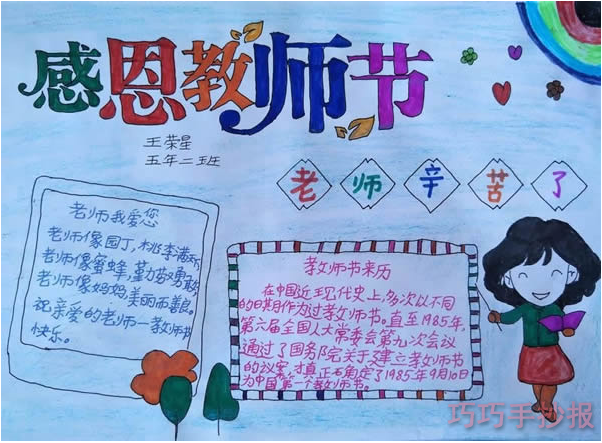 感恩教师节
王荣星
五年二班
老师辛苦了
老师我爱您
老师像园丁,桃李满天
老师像蜜蜂,勤劳勇敢
老师像妈妈,美丽而善良。
祝亲爱的老师一教师节
快乐。
教师节来历
在中国近现代史上,多次以不同
的日期作为过教师节。直至1985年,
第六届全国人大常委会第九次会议
通过了国务院关于建立教师节
的议案,才真正确定了1985年9月10日
为中国第一个教师节。
巧巧手抄报